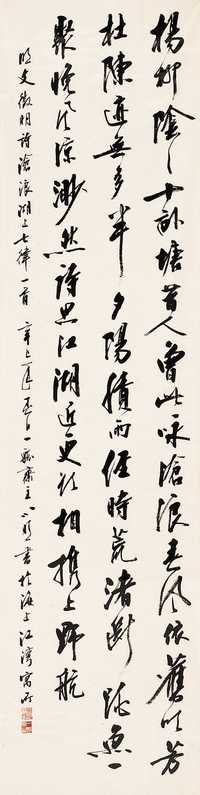 楊柳陰々十畝塘昔人曾此咏滄浪春風依舊吹芳
杜陳迹無多半夕陽積雨經時荒渚斷跳魚一
聚晚風涼渺然詩思江湖近更欲相携上野航
明文徵明詩滄浪湖上七律一首 辛巳年 齋主 書於海上江灣寓所